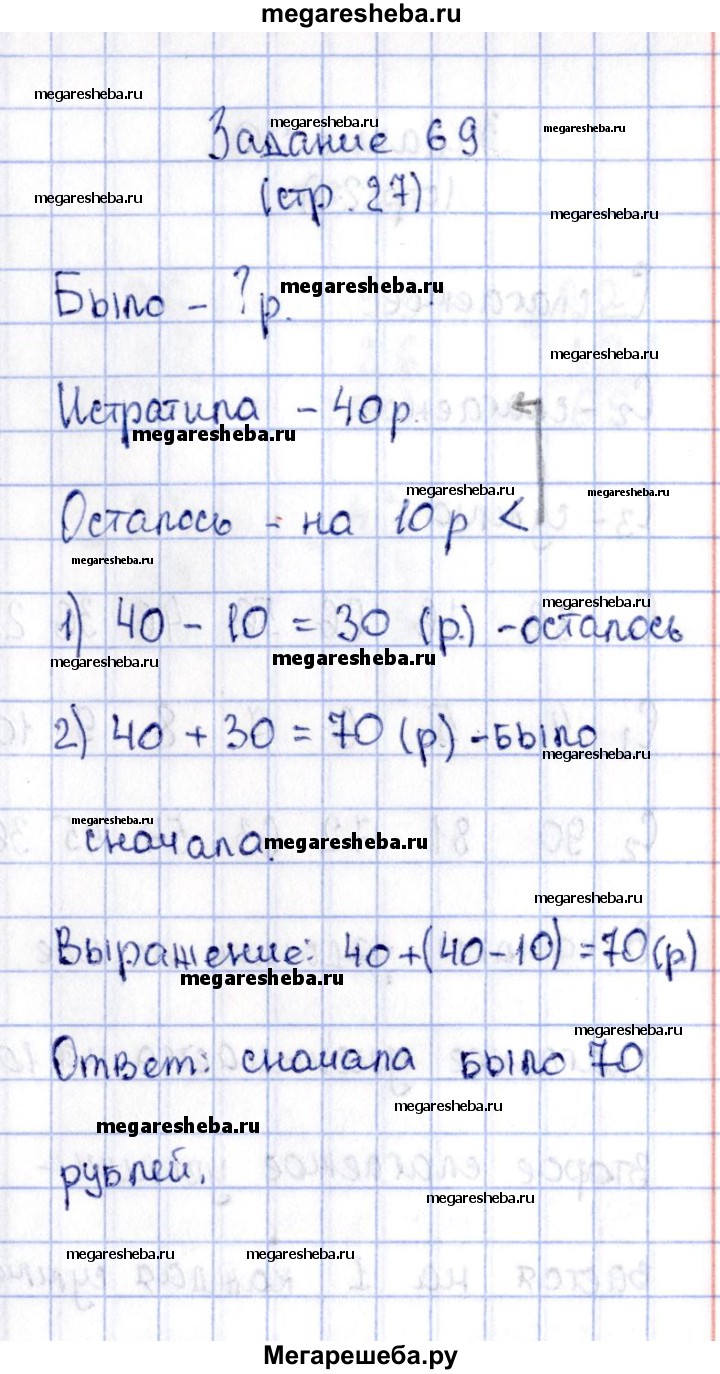 megaresheba.ru
megaresheba.ru
Задание 69
megaresheba.ru
megaresheba.ru
megaresheba.ru
(стр. 27)
megaresheba.ru
Было - ? р.
megaresheba.ru
megaresheba.ru
Истратила - 40 р.
megaresheba.ru
megaresheba.ru
megaresheba.ru
megaresheba.ru
Осталось - на 10 р <
megaresheba.ru
megaresheba.ru
1) 40 - 10 = 30 (р.) - осталось
megaresheba.ru
megaresheba.ru
2) 40 + 30 = 70 (р.) - было
megaresheba.ru
megaresheba.ru
сначала.
megaresheba.ru
megaresheba.ru
Выражение: 40+(40-10)=70(р)
megaresheba.ru
megaresheba.ru
Ответ: сначала было 70
megaresheba.ru
megaresheba.ru
рублей.
megaresheba.ru
megaresheba.ru
megaresheba.ru
Мегарешеба.ру